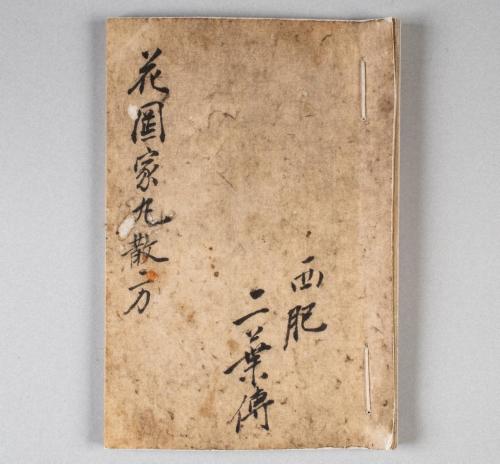 西肥
二葉傳
花岡家丸散方